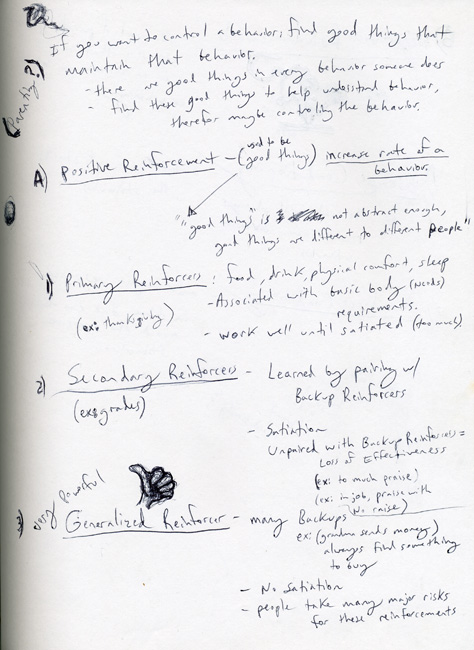 If you want to control a behavior, find good things that
maintain that behavior.
- there are good things in every behavior someone does
- find these good things to help understand behavior,
therefor maybe controling the behavior.
A) Positive Reinforcement - (good things) increase rate of a
used to be
behavior.
"good things" is not abstract enough,
good things are different to different people"
1) Primary Reinforcers : food, drink, physical comfort, sleep
- Associated with basic body (needs)
requirements.
(ex: thanksgiving)
- work well until satiated (too much)
2) Secondary Reinforcers - Learned by pairing w/
Backup Reinforcers
(ex: grades)
- Satiation
Unpaired with Backup Reinforcers =
Loss of Effectiveness
(ex: to much praise)
(ex: in job, praise with
No raise)
very powerful
3) Generalized Reinforcer - many Backups
ex: (grandma sends money)
always find something
to buy
- No Satiation
- people take many major risks
for these reinforcements